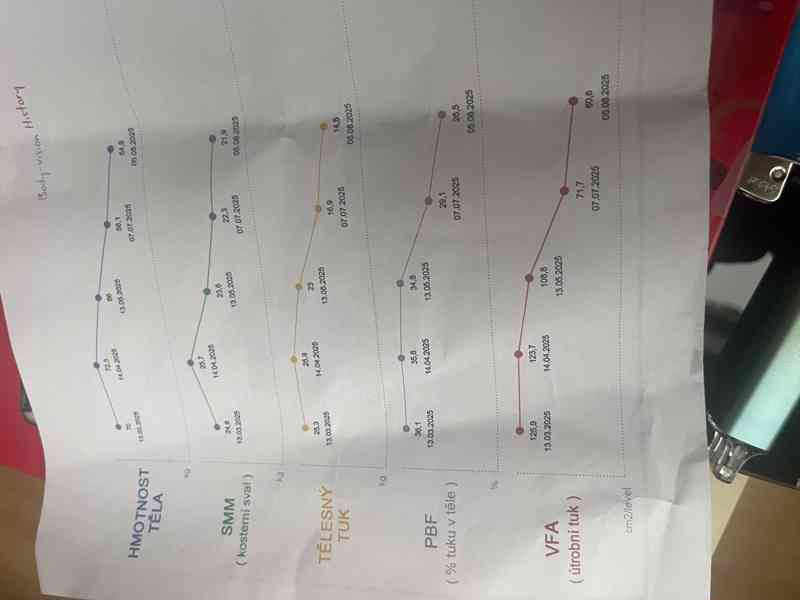 Body-vision History
HMOTNOST
TĚLA
kg
70
72,3
66
58,1
54,8
13.03.2025
14.04.2025
13.05.2025
07.07.2025
05.08.2025
SMM
( kosterní sval )
kg
24,8
25,7
23,6
22,3
21,9
13.03.2025
14.04.2025
13.05.2025
07.07.2025
05.08.2025
TĚLESNÝ
TUK
kg
25,3
25,8
23
16,9
14,5
13.03.2025
14.04.2025
13.05.2025
07.07.2025
05.08.2025
PBF
( % tuku v těle )
%
36,1
35,8
34,8
29,1
26,5
13.03.2025
14.04.2025
13.05.2025
07.07.2025
05.08.2025
VFA
( útrobní tuk )
cm2/level
125,9
123,7
108,8
71,7
60,6
13.03.2025
14.04.2025
13.05.2025
07.07.2025
05.08.2025